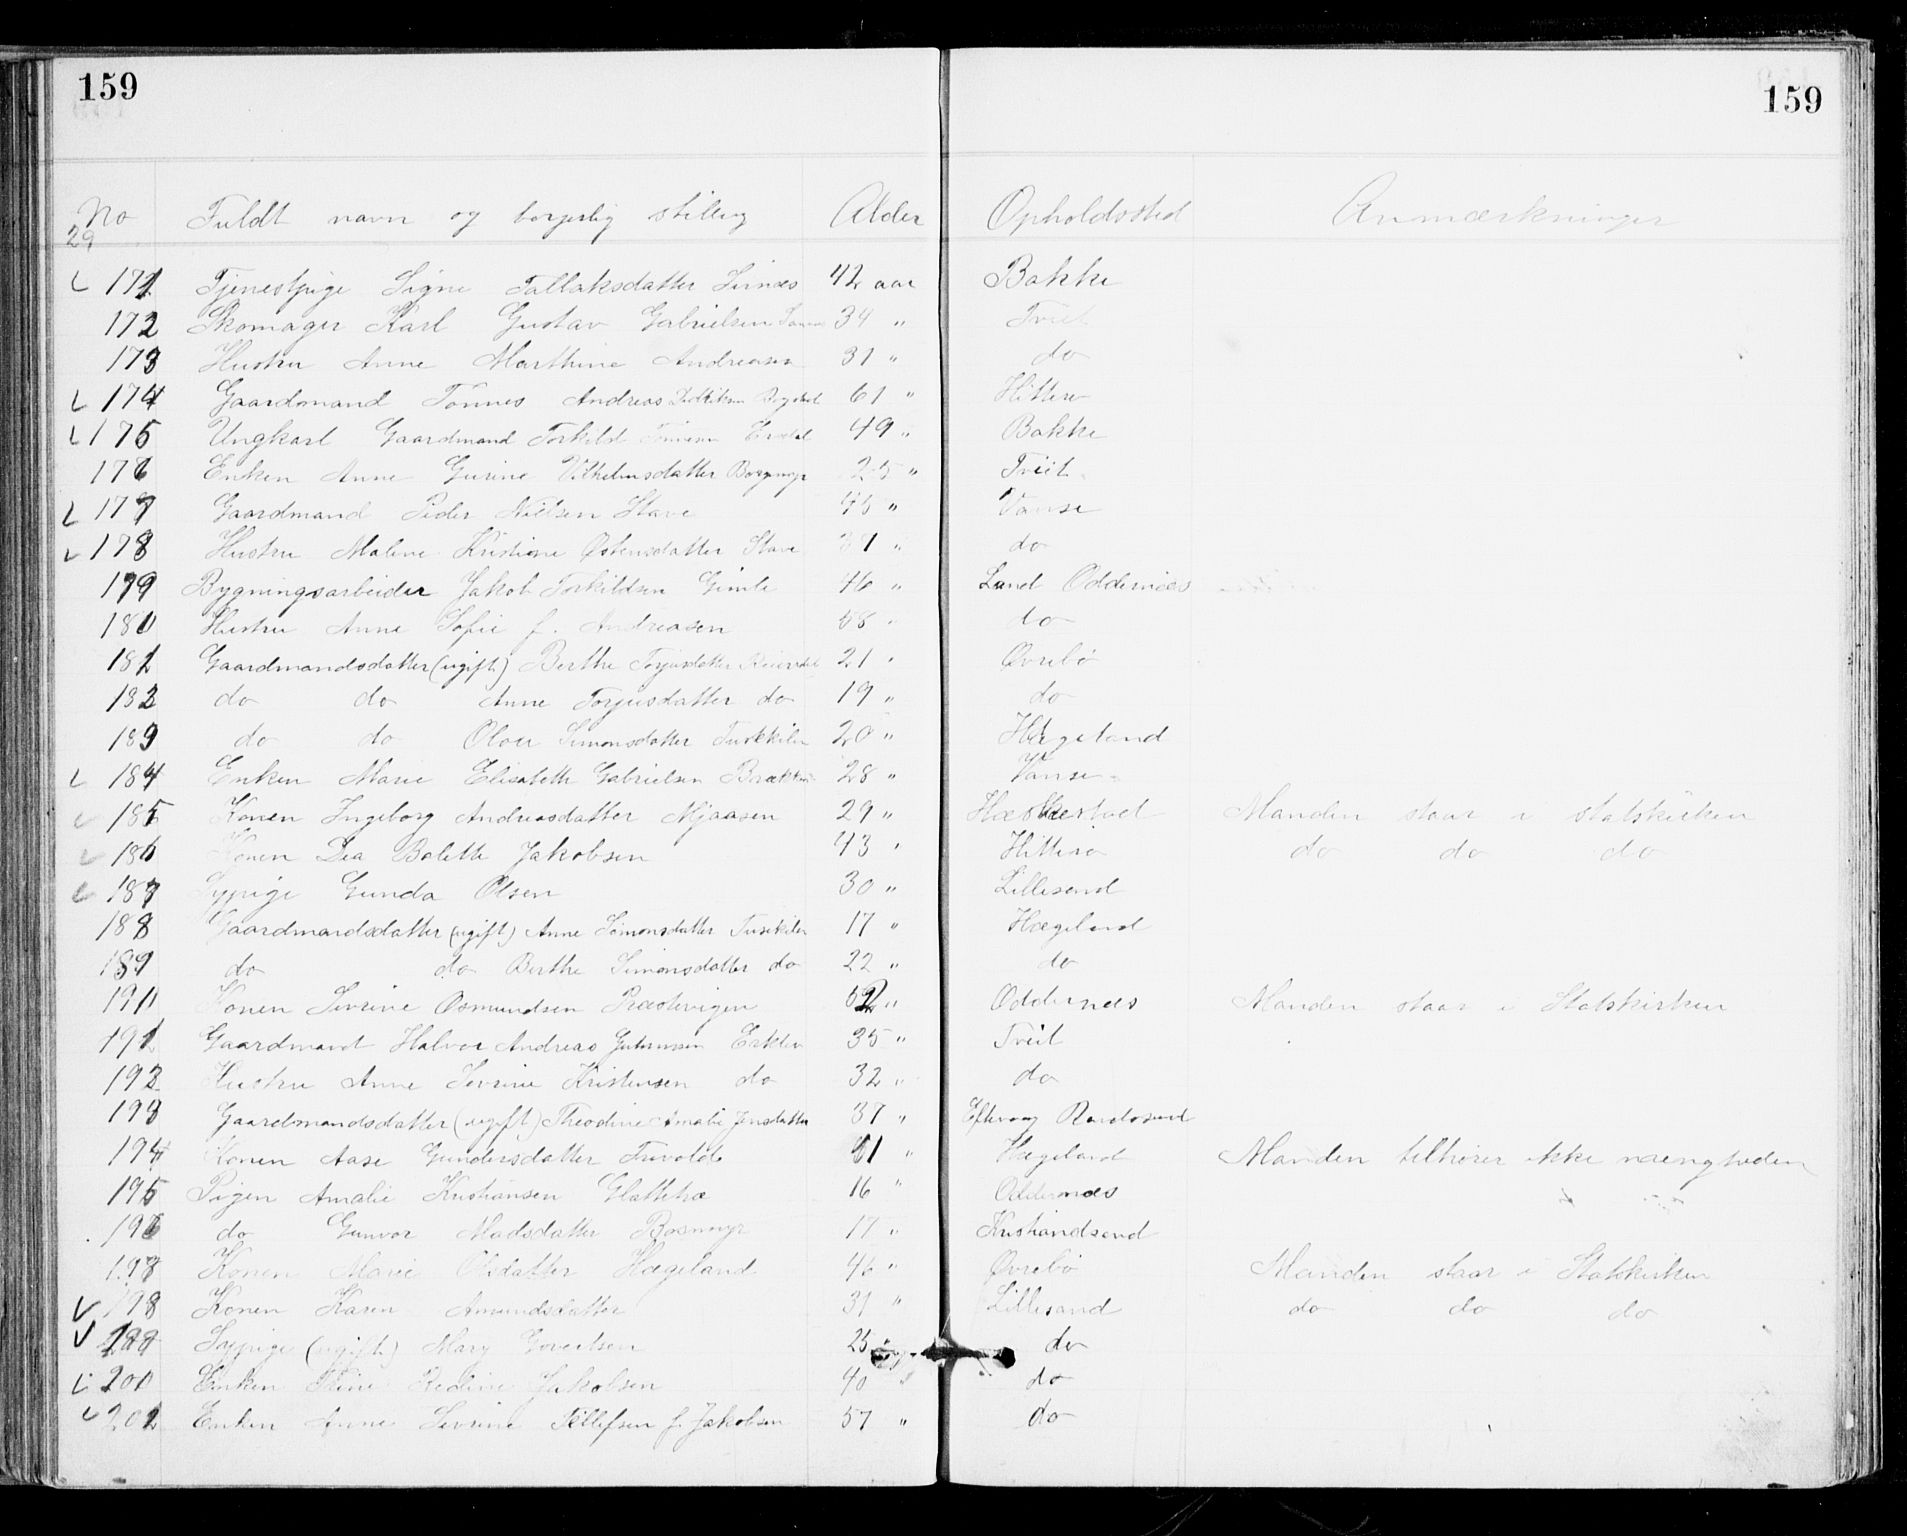 159 159
No Fuldt navn og borgerlig stilling Alder Opholdssted Anmærkninger
29
171 Tjenestpige Signe Tallaksdatter 42 aar Bakke
172 Skomager Karl Gustav Gabrielsen 34 " Tveit
173 Hustru Anne Marthine Andreasen 31 " do
174 Gaardmand Tønnes Andreas 61 " Hitterø
175 Ungkarl Gaardmand Torkild 49 " Bakke
176 Enken Anne Gurine Vilhelmsdatter 25 " Tveit
177 Gaardmand Peder Nielsen Stave 45 " Vanse
178 Hustru Maline Kristine Østensdatter Stave 37 " do
179 Bygningsarbeider Jakob Torkildsen Gimle 46 " Land Oddernæs
180 Hustru Anne Sofie f. Andreasen 58 " do
181 Gaardmandsdatter (ugift) Berthe Torjusdatter 21 " Øvrebø
182 do do Anne Torjusdatter do 19 " do
183 do do Olava Simonsdatter 20 " Hægeland
184 Enken Marie Elisabeth Gabrielsen 28 " Vanse
185 Konen Ingeborg Andreasdatter Mjaasen 29 " Hæskestad Manden staar i statskirken
186 Konen Dea Bolette Jakobsen 43 " Hitterø do do do
187 Sypige Gunda Olsen 30 " Lillesand
188 Gaardmandsdatter (ugift) Anne Simonsdatter 17 " Hægeland
189 do do Berthe Simonsdatter do 22 " do
190 Konen Sevrine Osmundsen Præstevigen 52 " Oddernæs Manden staar i Statskirken
191 Gaardmand Halvor Andreas 35 " Tveit
192 Hustru Anne Sevrine Kristensen do 32 " do
193 Gaardmandsdatter (ugift) Theodine Amalie Jensdatter 37 " Eftevaag Randosund
194 Konen Aase Gundersdatter 61 " Hægeland Manden tilhører ikke mængheden
195 Pigen Amalie Kristiansen Glattetræ 16 " Oddernæs
196 do Gunvor Madsdatter Bosmyr 17 " Kristiandsand
197 Konen Marie Olsdatter Hægeland 46 " Øvrebø Manden staar i Statskirken
198 Konen Karen Amundsdatter 31 " Lillesand do do do
199 Sypige (ugift) Mary Govertsen 25 do
200 Enken Trine Jakobsen 40 " do
201 Enken Anne Sevrine Tellefsen f. Jakobsen 57 " do